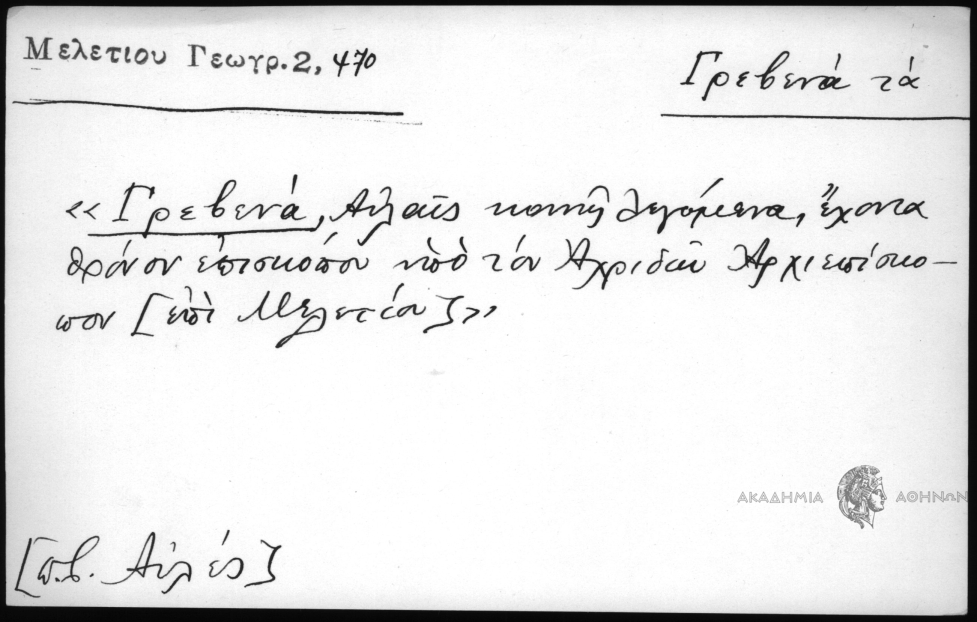 Μελετιου Γεωγρ. 2, 470
Γρεβενά τά
«Γρεβενά, Αὐλαῖς κοινῇ λεγόμενα, ἔχοντα
θρόνον ἐπισκόπου ὑπὸ τὸν Ἀχριδῶν Ἀρχιεπίσκο-
πον [ἐπὶ Μελετίου]»
ΑΚΑΔΗΜΙΑ ΑΘΗΝΩΝ
[π.β. Αὐλές]